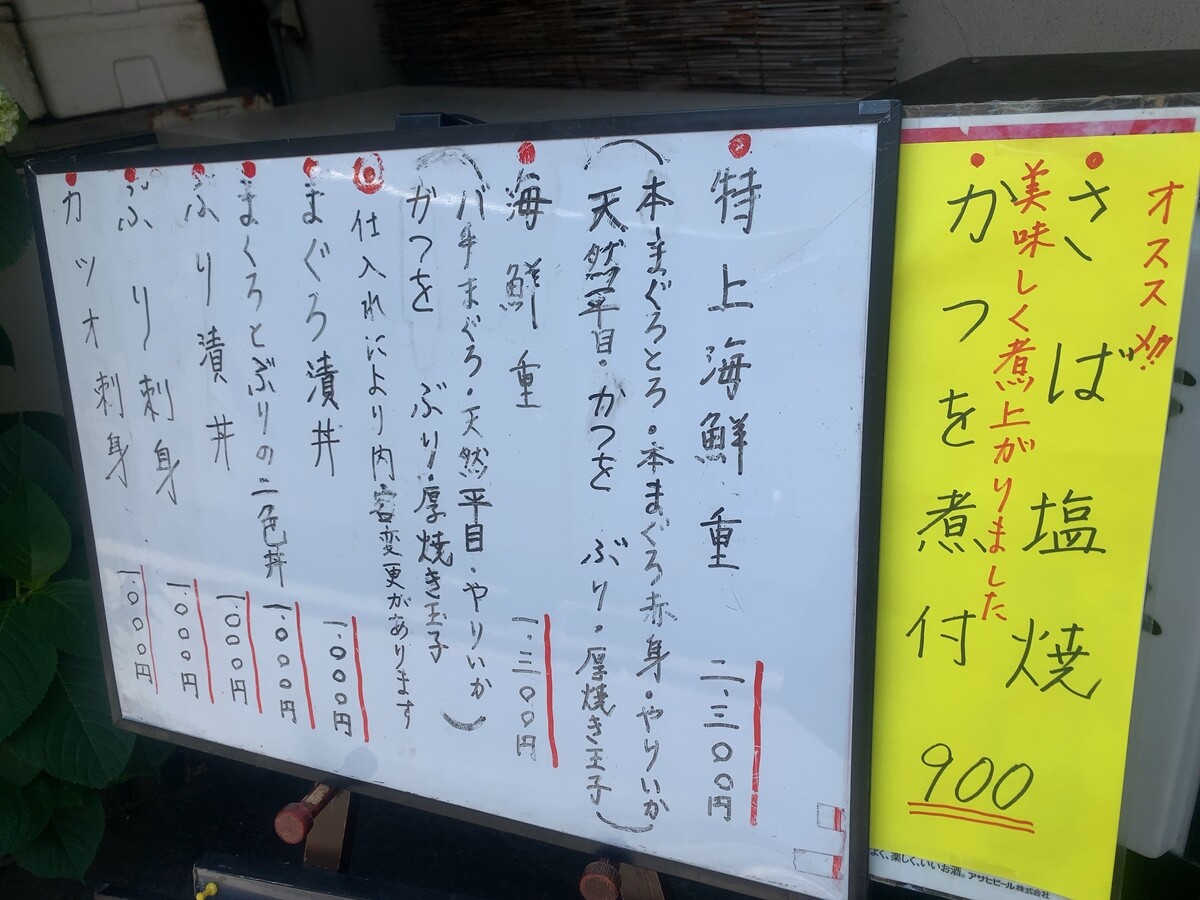 オススメ!!
さば塩焼
美味しく煮上がりました
かつを煮付
900
よく、楽しく、いいお酒。アサヒビール株式会社
特上海鮮重 二.三〇〇円
(本まぐろとろ・本まぐろ赤身・やりいか
天然平目・かつを ぶり・厚焼き玉子)
海鮮重 一.三〇〇円
(バチまぐろ・天然平目・やりいか
かつを ぶり・厚焼き玉子)
仕入れにより内容変更があります
まぐろ漬丼 一.〇〇〇円
まくろとぶりの二色丼 一.〇〇〇円
ぶり漬丼 一.〇〇〇円
ぶり刺身 一.〇〇〇円
カツオ刺身 一.〇〇〇円